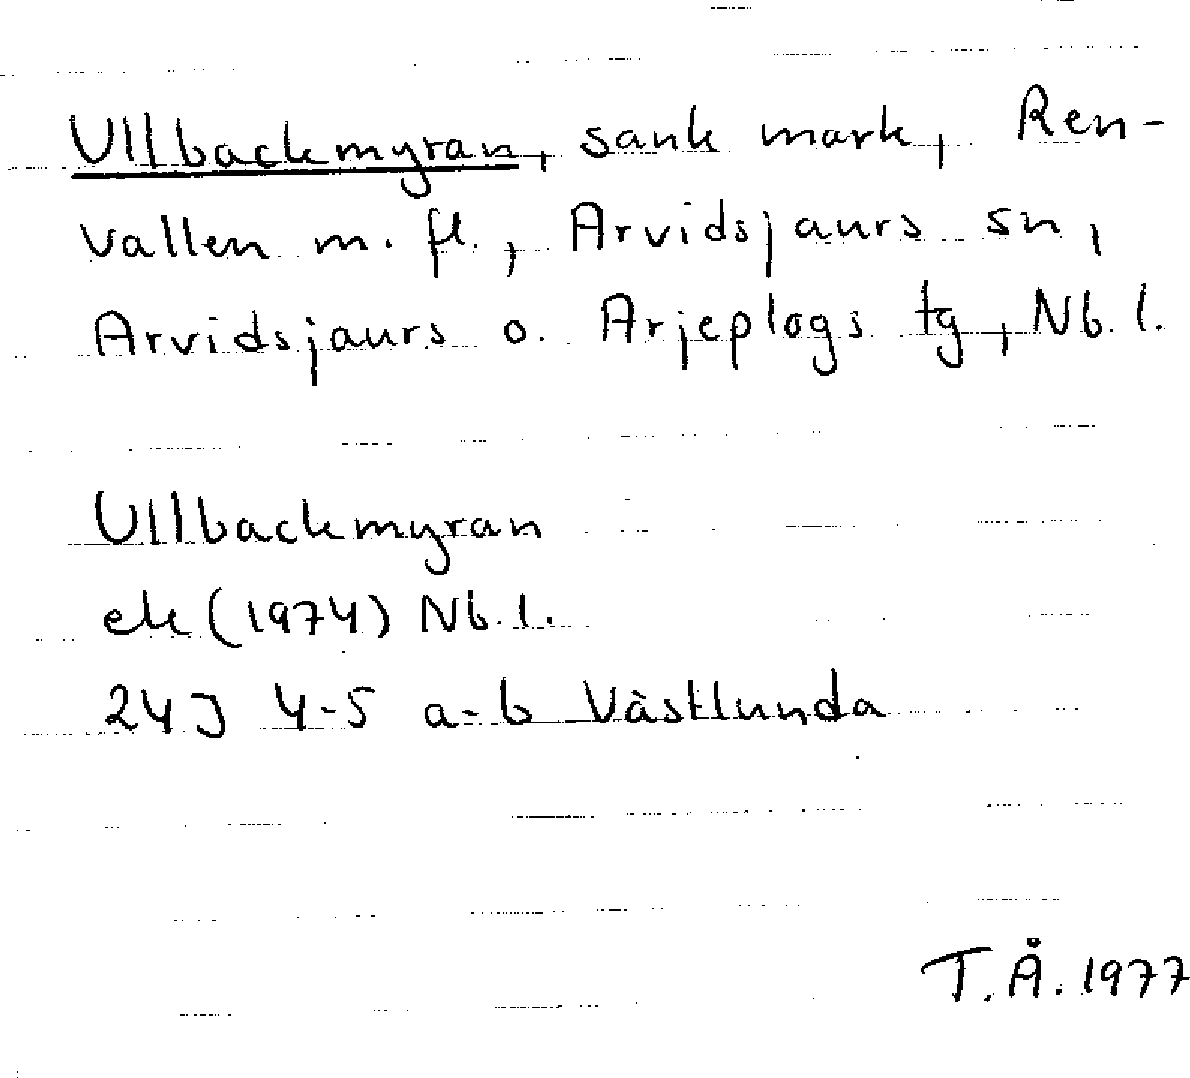 Ullbackmyran, sank mark, Ren-
vallen m. fl., Arvidsjaurs sn,
Arvidsjaurs o. Arjeplogs tg, Nb. l.
Ullbackmyran
ek (1974) Nb. l.
24J 4-5 a-b Västlunda
T.Å. 1977